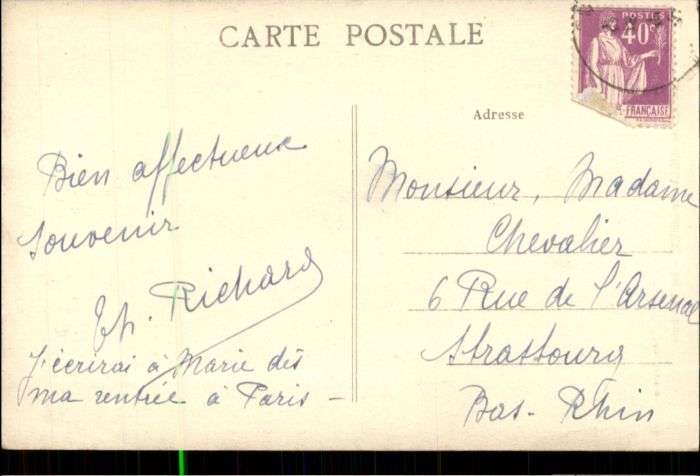 CARTE POSTALE
POSTES
40c
FRANÇAISE
Bien affectueux
souvenir
Th. Richard
J'écrirai à Marie dès
ma rentrée à Paris -
Adresse
Monsieur, Madame
Chevalier
6 Rue de l'Arsenal
Strasbourg
Bas-Rhin